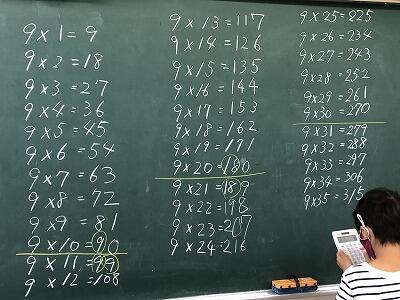 9 × 1 = 9
9 × 2 = 18
9 × 3 = 27
9 × 4 = 36
9 × 5 = 45
9 × 6 = 54
9 × 7 = 63
9 × 8 = 72
9 × 9 = 81
9 × 10 = 90
9 × 11 = 99
9 × 12 = 108
9 × 13 = 117
9 × 14 = 126
9 × 15 = 135
9 × 16 = 144
9 × 17 = 153
9 × 18 = 162
9 × 19 = 171
9 × 20 = 180
9 × 21 = 189
9 × 22 = 198
9 × 23 = 207
9 × 24 = 216
9 × 25 = 225
9 × 26 = 234
9 × 27 = 243
9 × 28 = 252
9 × 29 = 261
9 × 30 = 270
9 × 31 = 279
9 × 32 = 288
9 × 33 = 297
9 × 34 = 306
9 × 35 = 315